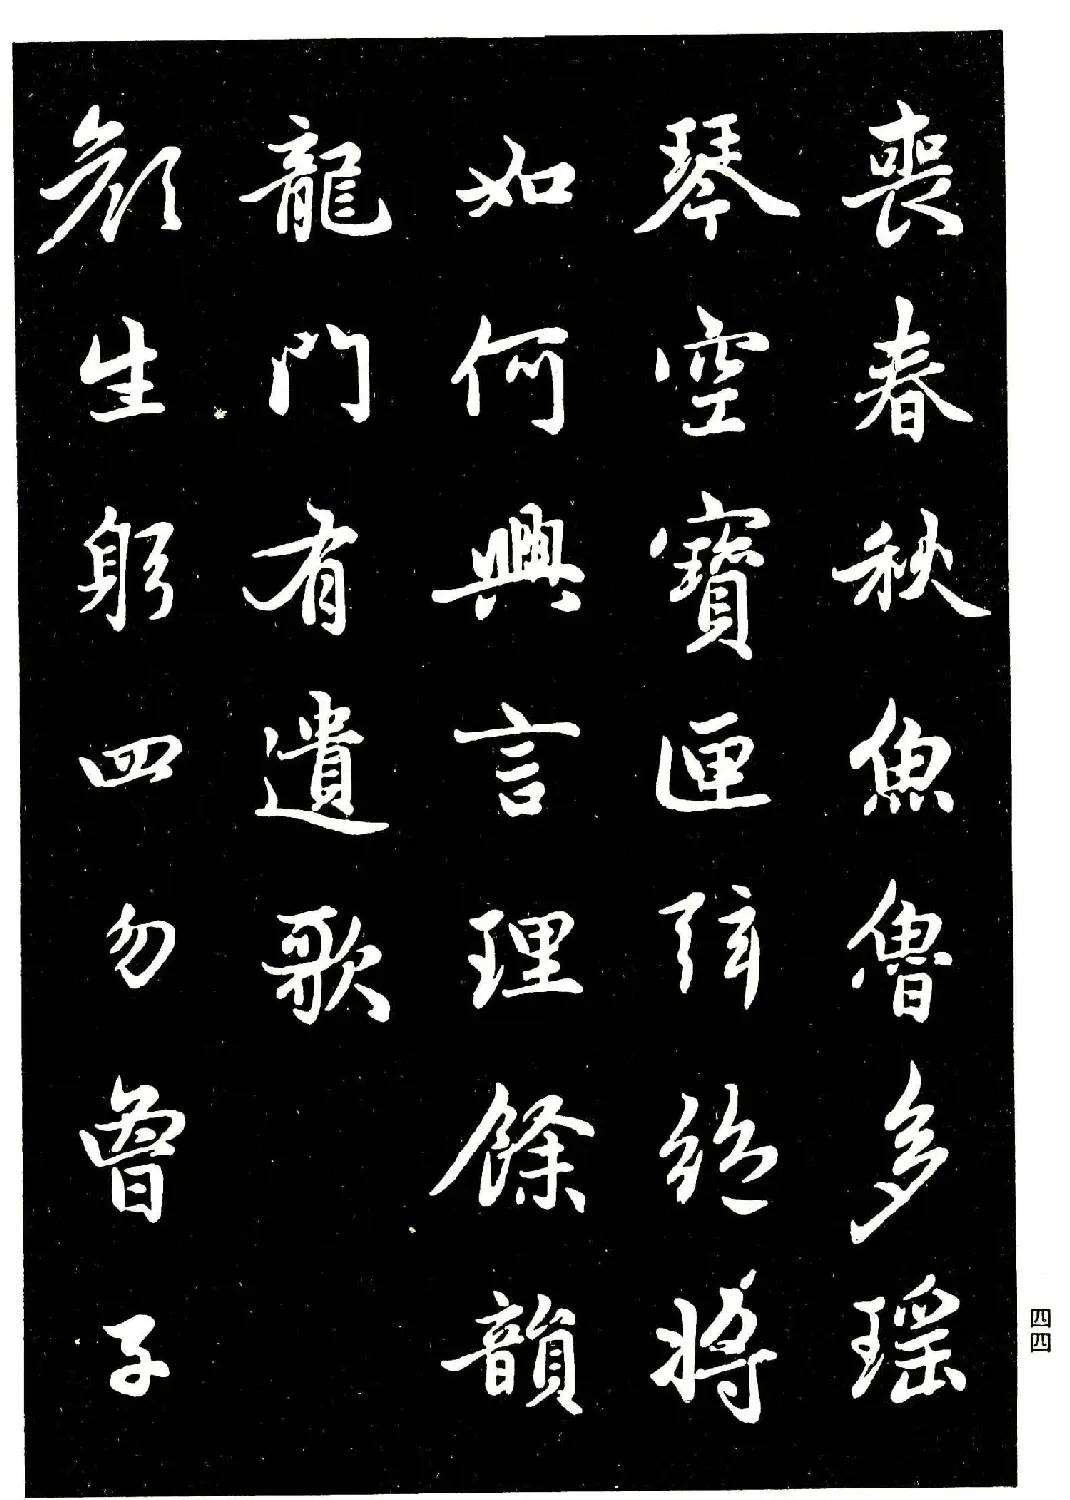 喪春秋魚魯多瑶
琴空寶匣弦絶將
如何興言理餘韻
龍門有遺歌
顔生躬四勿曾子
四四